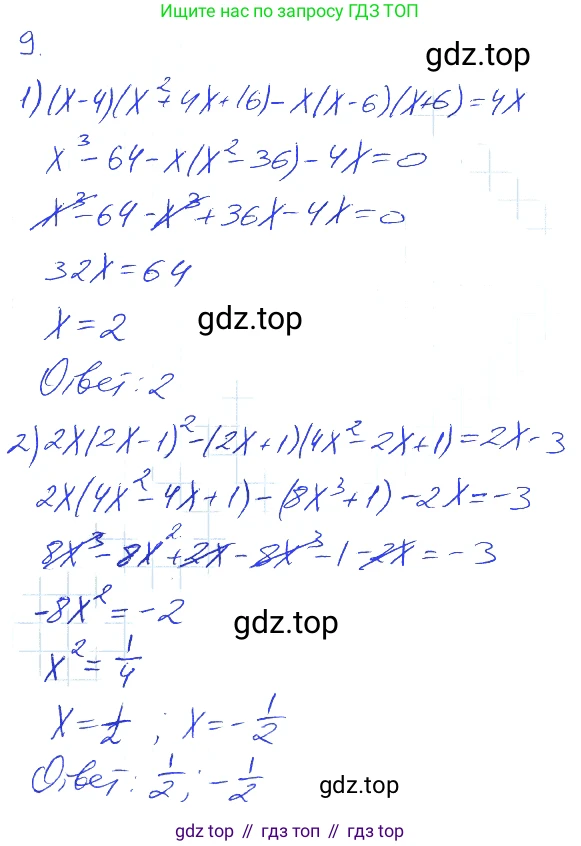 Ищите нас по запросу ГДЗ ТОП
9.
gdz.top
1) (x-4)(x²+4x+16)-x(x-6)(x+6)=4x
x³-64-x(x²-36)-4x=0
x³-64-x³+36x-4x=0
32x=64
x=2
gdz.top
Ответ: 2
2) 2x(2x-1)²-(2x+1)(4x²-2x+1)=2x-3
2x(4x²-4x+1)-(8x³+1)-2x=-3
8x³-8x²+2x-8x³-1-2x=-3
-8x²=-2
gdz.top
x²=1/4
x=1/2; x=-1/2
Ответ: 1/2; -1/2
gdz.top
gdz top // гдз топ // гдз top